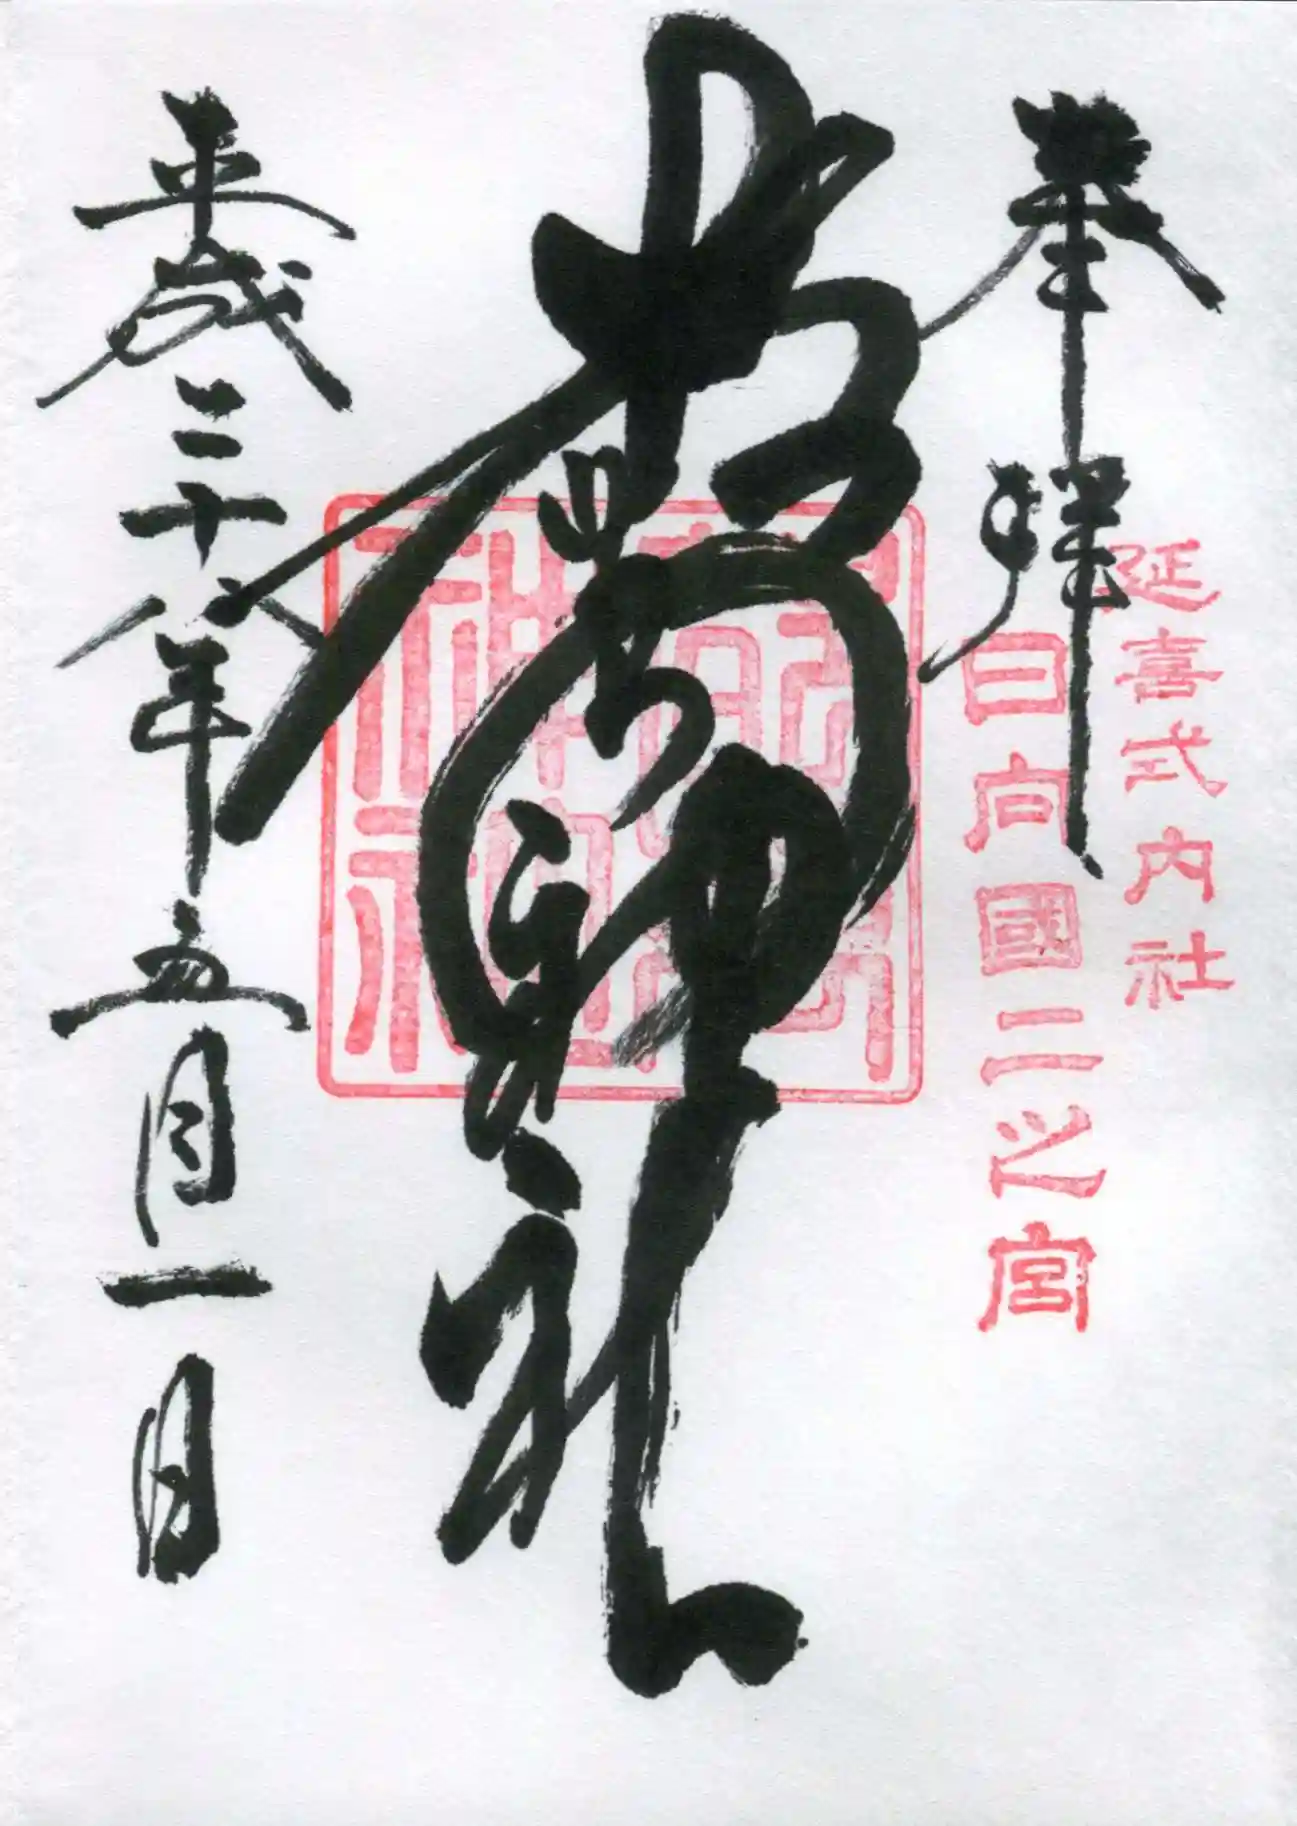 奉拜
延喜式内社
日向國二之宮
都萬神社
平成二十八年五月一日